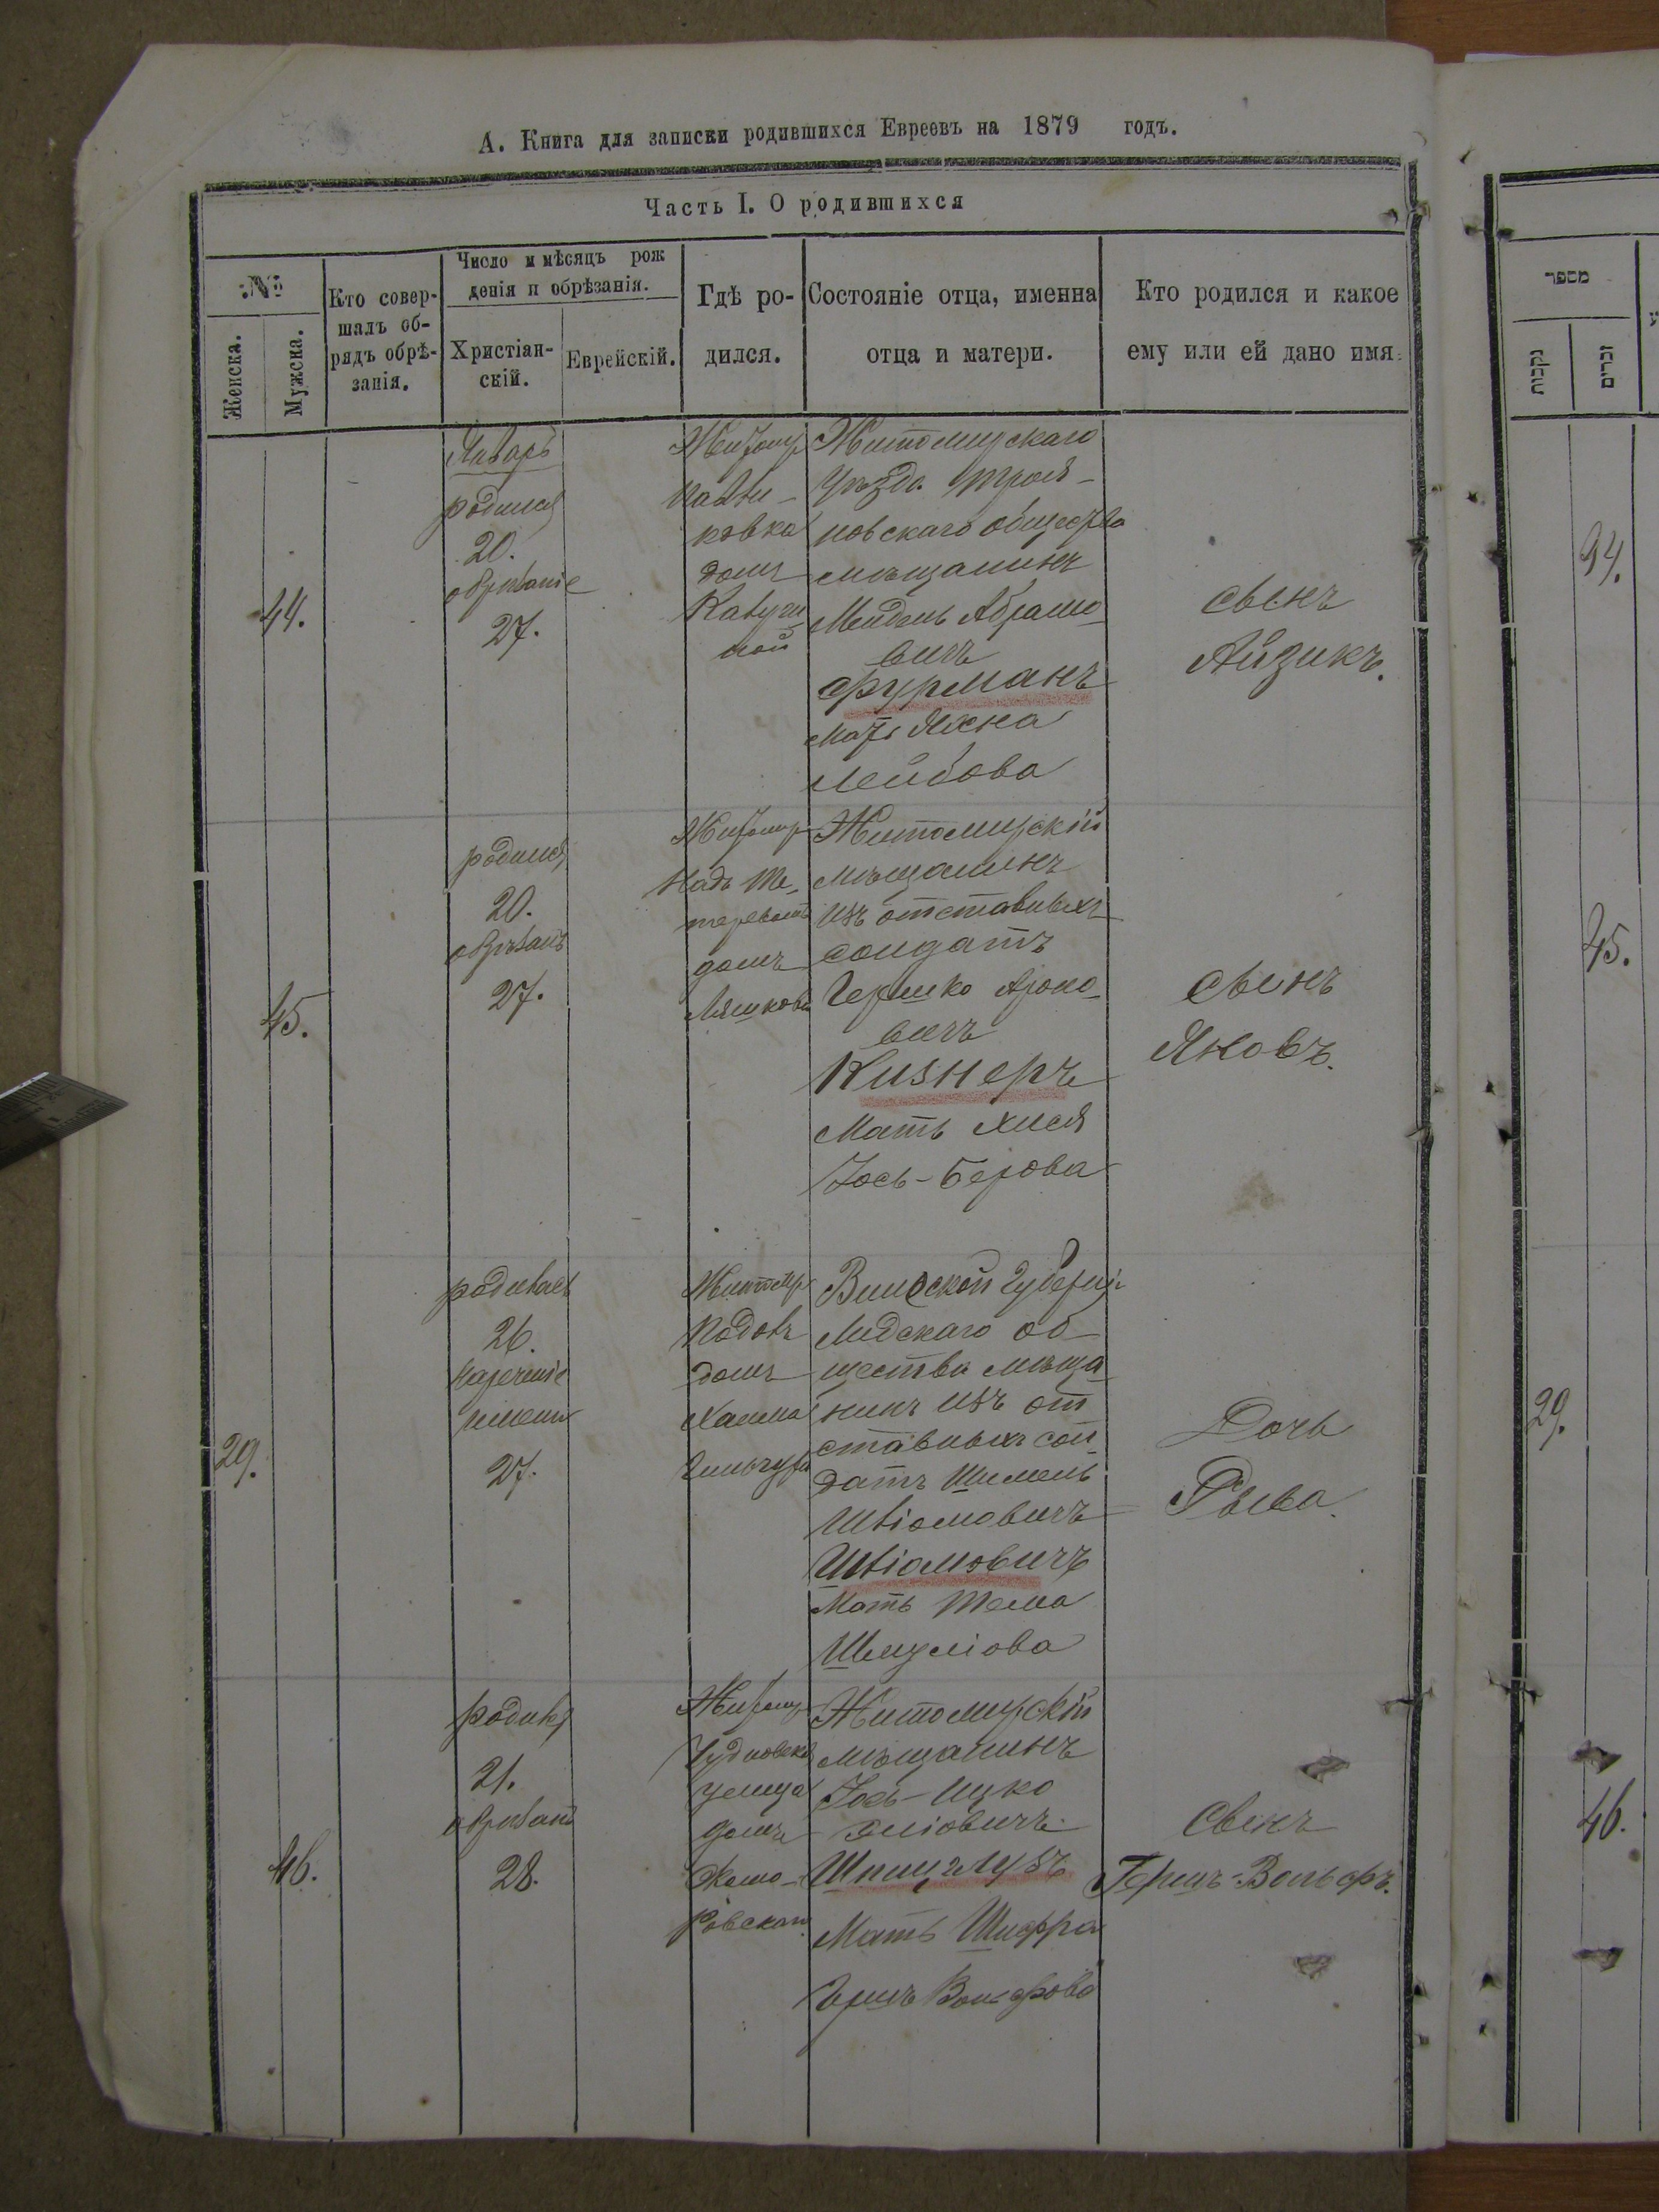 А. Книга для записки родившихся Евреевъ на 1879 годъ.
Часть I. О родившихся
№
Женска.
Мужска.
Кто совер-
шалъ об-
рядъ обрѣ-
занія.
Число и мѣсяцъ рож
денія и обрѣзанія.
Христіан-
скій.
Еврейскій.
Гдѣ ро-
дился.
Состояніе отца, именна
отца и матери.
Кто родился и какое
ему или ей дано имя.
44.
Январь
родился
20.
обрѣзаніе
27.
Житомир
ковка
домъ
ной
Житомирскаго
Уѣзда Троя-
новскаго общества
мѣщанинъ
Мендель Абрамо-
вичъ
Фурманъ
Мать Яхна
Лейбова
сынъ
Айзикъ.
45.
родился
20.
обрѣзанъ
27.
Житомир
Надъ Те-
теревомъ
домъ
Житомирскій
мѣщанинъ
изъ отставныхъ
солдатъ
Гершко Ароно-
вичъ
Кизнеръ
Мать Хися
Іось-Берова
сынъ
Яковъ.
29.
родилась
26.
нареченіе
имени
27.
Житомир
Подолъ
домъ
Хаима
Виленской Губерніи
Лидскаго об-
щества мѣща-
нинъ изъ от
ставныхъ сол-
датъ Шимель
Шліомовичъ
Шліомовичъ
Мать Тема
Шмуліова
Дочь
Рыва.
46.
родился
21.
обрѣзанъ
28.
Житомир
Чудновская
улица
домъ
Комо-
ровскаго.
Житомирскій
мѣщанинъ
Іось-Ицко
Эліовичъ
Шпицглузъ
Мать Шифра
Гершъ Вольфова
Сынъ
Гершъ-Вольфъ.
מספר
נקבות
זכרים
94.
45.
29.
46.